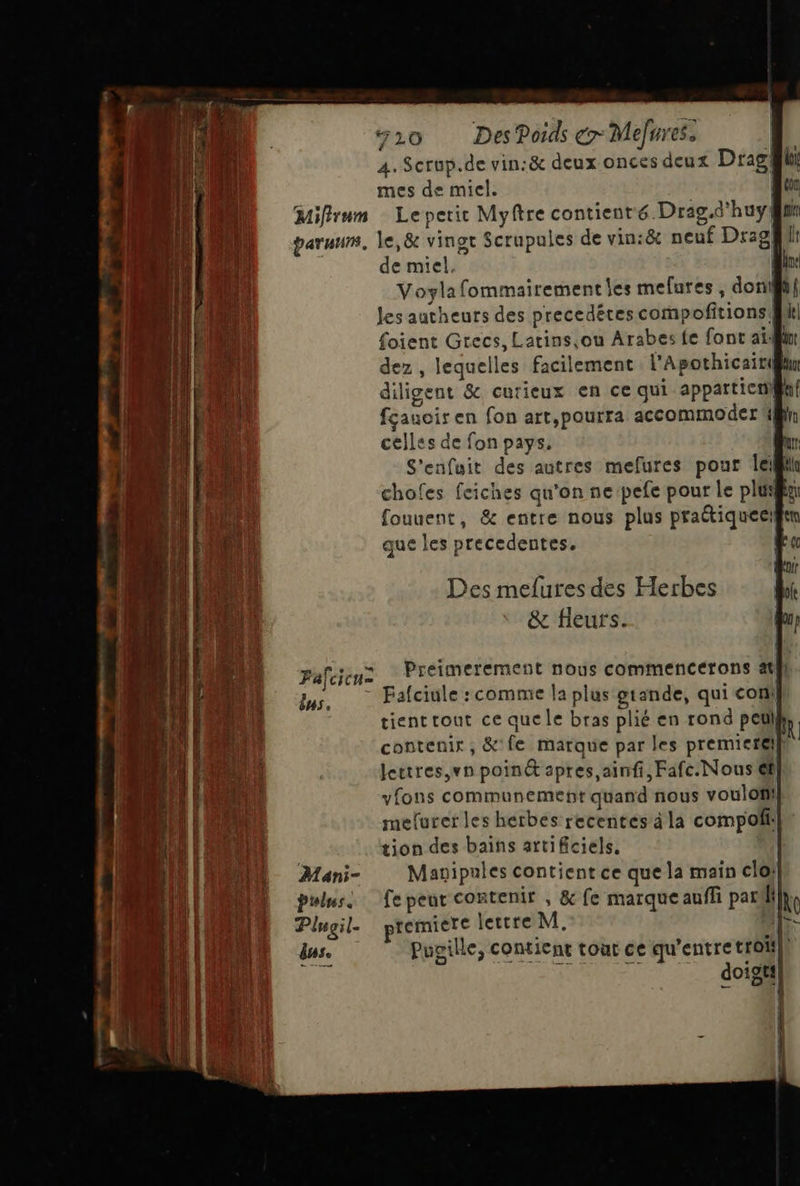 720 Des Poids & Mesures.
4. Scrup.de vin:& deux onces deux Drag
mes de miel.
Mistrum Le petit Mystre contient 6. Drag.d'huy
paruum, le, & vingt Scrupules de vin:& neuf Drag
de miel.
Voyla sommairement les mesures, dont
les autheurs des precedétes compositions
soient Grecs, Latins, ou Arabes se sont ai-
dez, lequelles facilement l'Apothicaire
diligent & curieux en ce qui appartient
sçauoir en son art, pourra accommoder
celles de son pays.
S'ensuit des autres mesures pour les
choses seiches qu'on ne pese pour le plus
souuent, & entre nous plus practiquees
que les precedentes.
Des mesures des Herbes
& fleurs.
Fascicu= Preimerement nous commencerons
lus. Fasciule : comme la plus grande, qui con-
tient tout ce que le bras plié en rond peut
contenir, & se marque par les premieres
lettres, vn poinct apres, ainsi, Fasc. Nous en
vsons communement quand nous voulons
mesurer les herbes recentes à la composi-
tion des bains artificiels.
Mani- Manipules contient ce que la main clo-
pulus. se peut contenir, & se marque aussi par
Plugil- premiere lettre M.
lus. Pugille, contient tout ce qu'entre trois
doigts